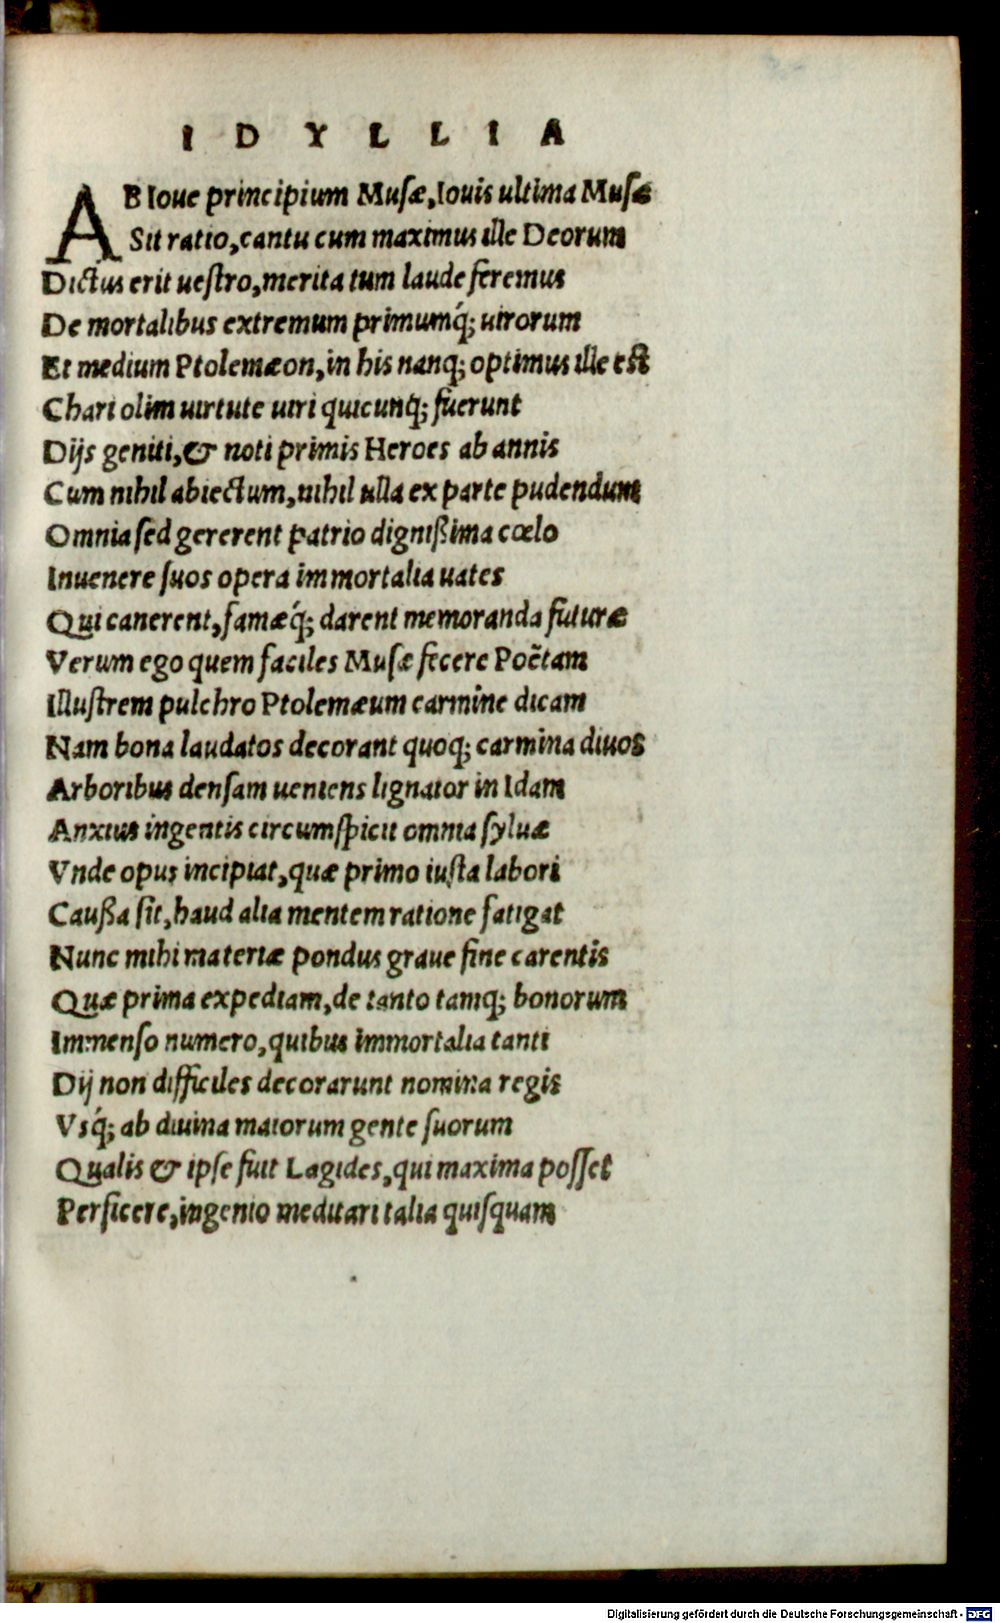 IDYLLIA
AB Ioue principium Musæ, Iouis ultima Musæ
Sit ratio, cantu cum maximus ille Deorum
Dictus erit uestro, merita tum laude feremus
De mortalibus extremum primumq́; uirorum
Et medium Ptolemæon, in his nanq; optimus ille est
Chari olim uirtute uiri quicunq; fuerunt
Dijs geniti, & noti primis Heroes ab annis
Cum nihil abiectum, nihil ulla ex parte pudendum
Omnia sed gererent patrio dignißima cœlo
Inuenere suos opera immortalia uates
Qui canerent, famæq́; darent memoranda futuræ
Verum ego quem faciles Musæ fecere Poëtam
Illustrem pulchro Ptolemæum carmine dicam
Nam bona laudatos decorant quoq; carmina diuos
Arboribus densam ueniens lignator in Idam
Anxius ingentis circumspicit omnia syluæ
Vnde opus incipiat, quæ primo iusta labori
Caußa sit, haud alia mentem ratione fatigat
Nunc mihi materiæ pondus graue fine carentis
Quæ prima expediam, de tanto tamq; bonorum
Immenso numero, quibus immortalia tanti
Dij non difficiles decorarunt nomina regis
Vsq́; ab diuina maiorum gente suorum
Qualis & ipse fuit Lagides, qui maxima posset
Perficere, ingenio meditari talia quisquam
Digitalisierung gefördert durch die Deutsche Forschungsgemeinschaft - DFG